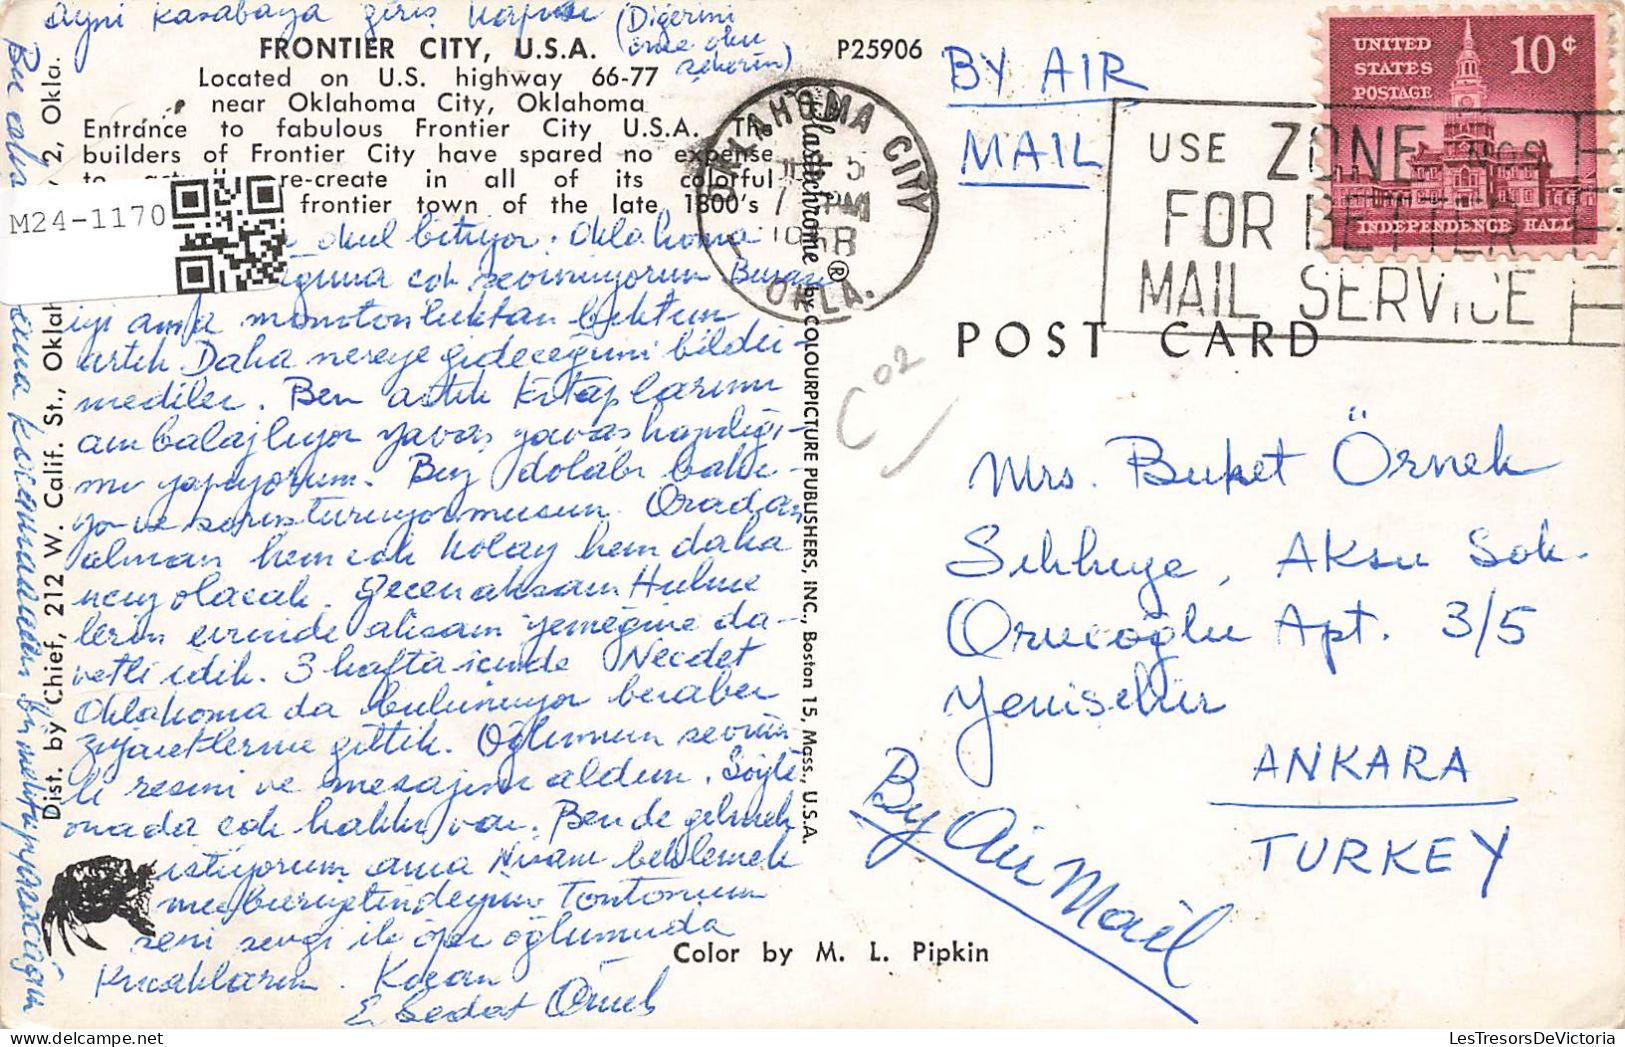 Ayni kasabaya giriş kapısı (Diğerini
önce oku
şekerim)
FRONTIER CITY, U.S.A.
Located on U.S. highway 66-77
near Oklahoma City, Oklahoma
Entrance to fabulous Frontier City U.S.A. The
builders of Frontier City have spared no expense
to re-create in all of its colorful
frontier town of the late 1800's
M24-1170
okul bitiyor. Oklahoma
çok seviniyorum Burası
iyi ama monotonluktan bıktım
artık Daha nereye gideceğimi bildir-
mediler. Ben artık kitaplarımı
ambalajlıyor yavaş yavaş hazırlığı-
mı yapıyorum. Buz dolabı
soruşturuyormusun. Oradan
almam hem çok kolay hem daha
ucuz olacak. Geçen akşam Hulme
lerin evinde akşam yemeğine da-
vetli idik. 3 hafta içinde Necdet
Oklahoma da bulunuyor beraber
ziyaretlerine gittik. Oğlumun sevim-
li resmi ve mesajını aldım.
onada çok hakkı var. Bende gelmek
istiyorum ama Nisanı beklemek
mecburiyetindeyim Tontonum
seni sevgi ile öper oğlumuda
Kucaklarım. Kocan
E. Sedat Örnek
Dist. by Chief, 212 W. Calif. St., Oklah 2, Okla.
Plastichrome ® by COLOURPICTURE PUBLISHERS, INC., Boston 15, Mass., U.S.A.
P25906
BY AIR
MAIL
OKLAHOMA CITY
5
PM
OKLA.
USE ZONE NOS
FOR BETTER
MAIL SERVICE
UNITED
STATES
POSTAGE
10¢
INDEPENDENCE HALL
POST CARD
C02
Mrs. Buket Örnek
Sıhhıye, Aksu Sok.
Orucoğlu Apt. 3/5
Yenişehir
ANKARA
TURKEY
By Air Mail
Color by M. L. Pipkin
LesTresorsDeVictoria